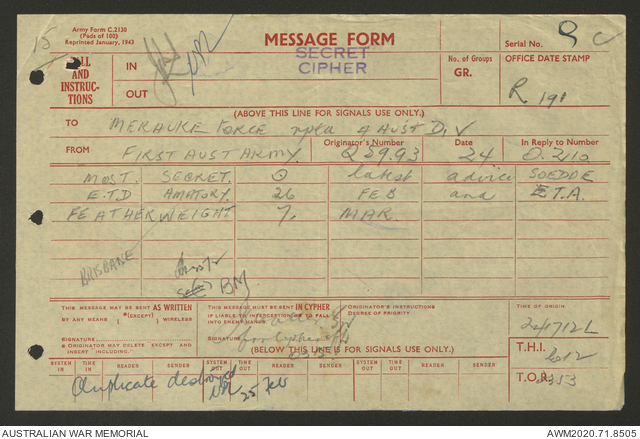 15
Army Form C.2130
(Pads of 100)
Reprinted January, 1943
MESSAGE FORM
SECRET
CIPHER
Serial No. 9 C
CALL
AND
INSTRUC-
TIONS
IN
OUT
No. of Groups
GR.
OFFICE DATE STAMP
R 191
(ABOVE THIS LINE FOR SIGNALS USE ONLY.)
TO MERAUKE FORCE rptd 4 AUST DIV
FROM FIRST AUST ARMY Originator's Number Q2993 Date 24 In Reply to Number O.210
MOST SECRET ⊙ latest advice SOEDOE
E.T.D AMATORY 26 FEB and E.T.A.
FEATHERWEIGHT 7 MAR
BRISBANE
BM
THIS MESSAGE MAY BE SENT AS WRITTEN
BY ANY MEANS (EXCEPT) WIRELESS
SIGNATURE
ORIGINATOR MAY DELETE EXCEPT AND
INSERT INCLUDING.
THIS MESSAGE MUST BE SENT IN CYPHER
IF LIABLE TO INTERCEPTION OR TO FALL
INTO ENEMY HANDS.
SIGNATURE for Cyphers
ORIGINATOR'S INSTRUCTIONS
DEGREE OF PRIORITY
TIME OF ORIGIN
241712L
(BELOW THIS LINE IS FOR SIGNALS USE ONLY.)
T.H.I. 2012
T.O.R.
SYSTEM IN TIME IN READER SENDER SYSTEM OUT TIME OUT READER SENDER SYSTEM OUT TIME OUT READER SENDER
Duplicate destroyed
25 Feb
AUSTRALIAN WAR MEMORIAL
AWM2020.71.8505